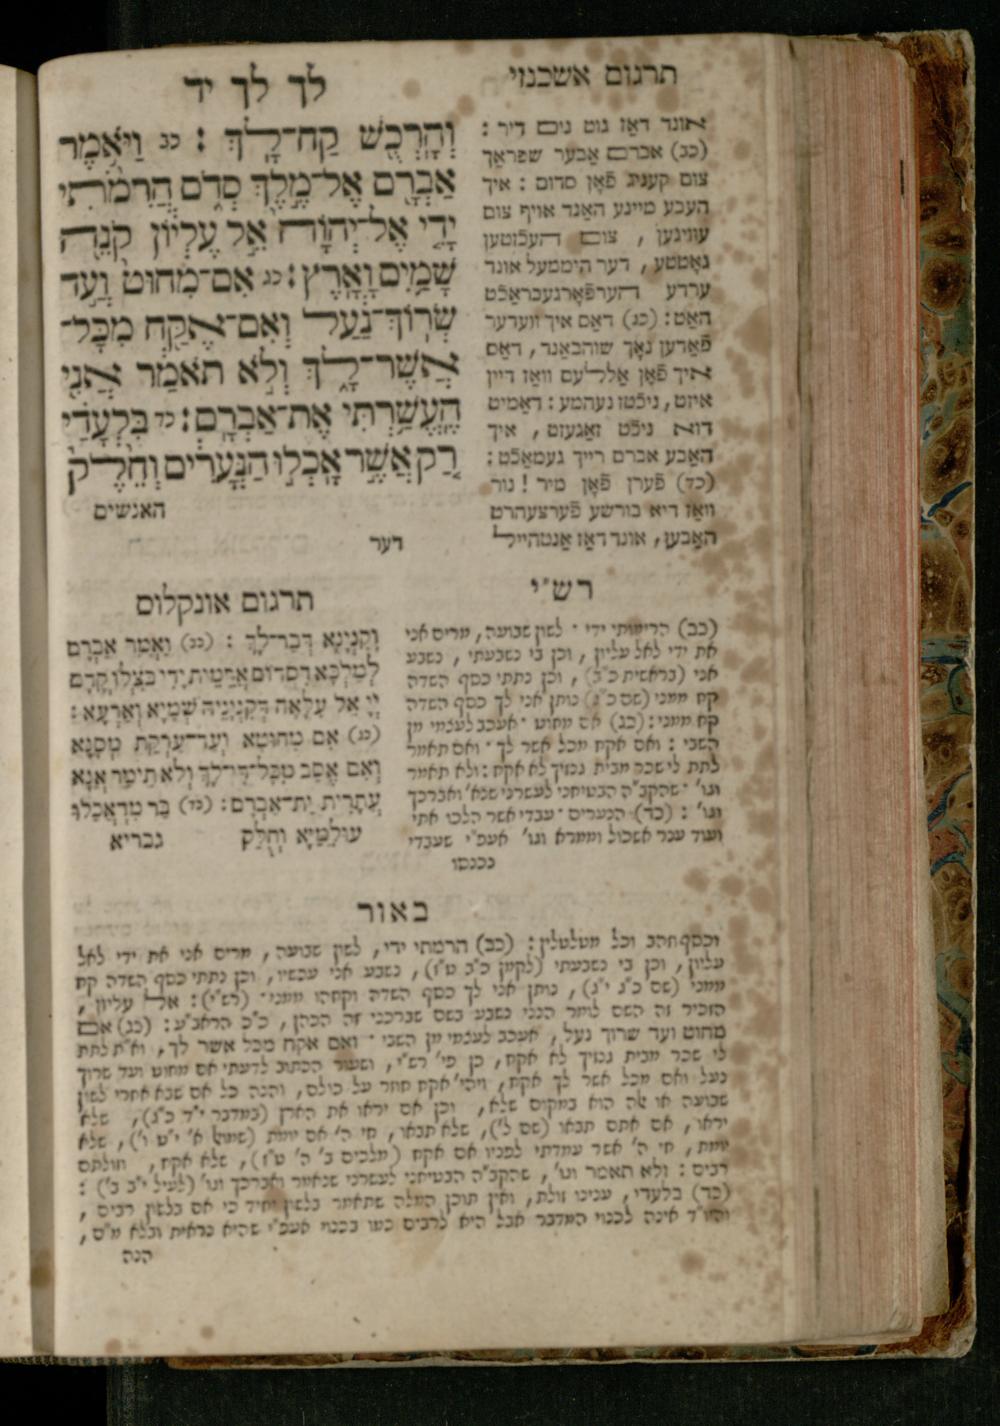 לך לך יד
וְהָרְכֻשׁ קַח־לָךְ : כב וַיֹּאמֶר
אַבְרָם אֶל־מֶלֶךְ סְדֹם הֲרִמֹתִי
יָדִי אֶל־יְהוָֹה אֵל עֶלְיוֹן קֹנֵה
שָׁמַיִם וָאָרֶץ : כג אִם־מִחוּט וְעַד
שְׂרוֹךְ־נַעַל וְאִם־אֶקַּח מִכָּל־
אֲשֶׁר־לָךְ וְלֹא תֹאמַר אֲנִי
הֶעֱשַׁרְתִּי אֶת־אַבְרָם : כד בִּלְעָדַי
רַק אֲשֶׁר אָכְלוּ הַנְּעָרִים וְחֵלֶק
האנשים
תרגום אשכנזי
אונד דאז גוט נים דיר :
(כב) אברם אבער שפראך
צום קעניג פֿאן סדום : איך
העבע מיינע האנד אויף צום
עוויגען , צום העכזטען
גאטטע , דער היממעל אונד
ערדע הערפֿארגעבראכט
האט : (כג) דאס איך וועדער
פֿאדען נאך שוהבאנד , דאס
איך פֿאן אללעם וואז דיין
איזט , ניכטז נעהמע : דאמיט
דוא ניכט זאגעזט , איך
האבע אברם רייך געמאכט :
(כד) פֿערן פֿאן מיר ! נור
וואז דיא בורשע פֿערצעהרט
האבען , אונד דאז אנטהייל
דער
רש״י
(כב) הרימותי ידי · לשון שבועה , מרים אני
את ידי לאל עליון , וכן בי נשבעתי , נשבע
אני (בראשית כ״ב) , וכן נתתי כסף השדה
קח ממני (שם כ״ג) נותן אני לך כסף השדה
קח ממני : (כג) אם מחוט · אעכב לעצמי מן
השבי : ואם אקח מכל אשר לך · ואם תאמר
לתת לי שכר מבית גנזיך לא אקח : ולא תאמר
וגו׳ · שהקב״ה הבטיחני לעשרני שנא׳ ואברכך
וגו׳ : (כד) הנערים · עבדי אשר הלכו אתי
ועוד ענר אשכול וממרא וגו׳ אעפ״י שעבדי
נכנסו
תרגום אונקלוס
וְקִנְיָנָא דְּבַר־לָךְ : (כב) וַאֲמַר אַבְרָם
לְמַלְכָּא דִסְדוֹם אֲרֵמִית יְדִי בִּצְלוֹ קֳדָם
יְיָ אֵל עִלָּאָה דְּקִנְיָנֵיהּ שְׁמַיָּא וְאַרְעָא :
(כג) אִם מִחוּטָא וְעַד־עַרְקַת מְסָנָא
וְאִם אֶסַּב מִכָּל־דִּי־לָךְ וְלָא תֵימַר אֲנָא
עַתָּרִית יַת־אַבְרָם : (כד) בַּר מִדַּאֲכָלוּ
עוּלֵמַיָּא וָחֳלַק גבריא
באור
וכסף וזהב וכל מטלטלין : (כב) הרמתי ידי , לשון שבועה , מרים אני את ידי לאל
עליון , וכן בי נשבעתי (לקמן כ״ב ט״ז) , נשבע אני עכשיו , וכן נתתי כסף השדה קח
ממני (שם כ״ג י״ג) , נותן אני לך כסף השדה וקחהו ממני · (רש״י) : אל עליון ,
הזכיר זה השם לומר הנני נשבע בשם שברכני זה הכהן , כ״כ הראב״ע : (כג) אם
מחוט ועד שרוך נעל , אעכב לעצמי מן השבי · ואם אקח מכל אשר לך , וא״ת לתת
לי שכר מבית גנזיך לא אקח , כן פי׳ רש״י , ושעור הכתוב לדעתי אם מחוט ועד שרוך
נעל ואם מכל אשר לך אקח , ויהי׳ אקח חוזר על כולם , והנה כל אם שבא אחרי לשון
שבועה או אלה הוא במקום שלא , וכן אם יראו את הארץ (במדבר י״ד כ״ג) , שלא
יראו , אם אתם תבאו (שם ל׳) , שלא תבאו , חי ה׳ אם יומת (שמואל א׳ י״ט ו׳) , שלא
יומת , חי ה׳ אשר עמדתי לפניו אם אקח (מלכים ב׳ ה׳ ט״ז) , שלא אקח , וזולתם
רבים : ולא תאמר וגו׳ , שהקב״ה הבטיחני לעשרני שנאמר ואברכך וגו׳ (לעיל י״ב ב׳) :
(כד) בלעדי , ענינו זולת , ואין תוכן המלה שתאמר בלשון יחיד כי אם בלשון רבים ,
והיו״ד אינה לכנוי המדבר אבל היא לרבים כמו בכנוי אעפ״י שהיא נראית ובלא מ״ם ,
הנה